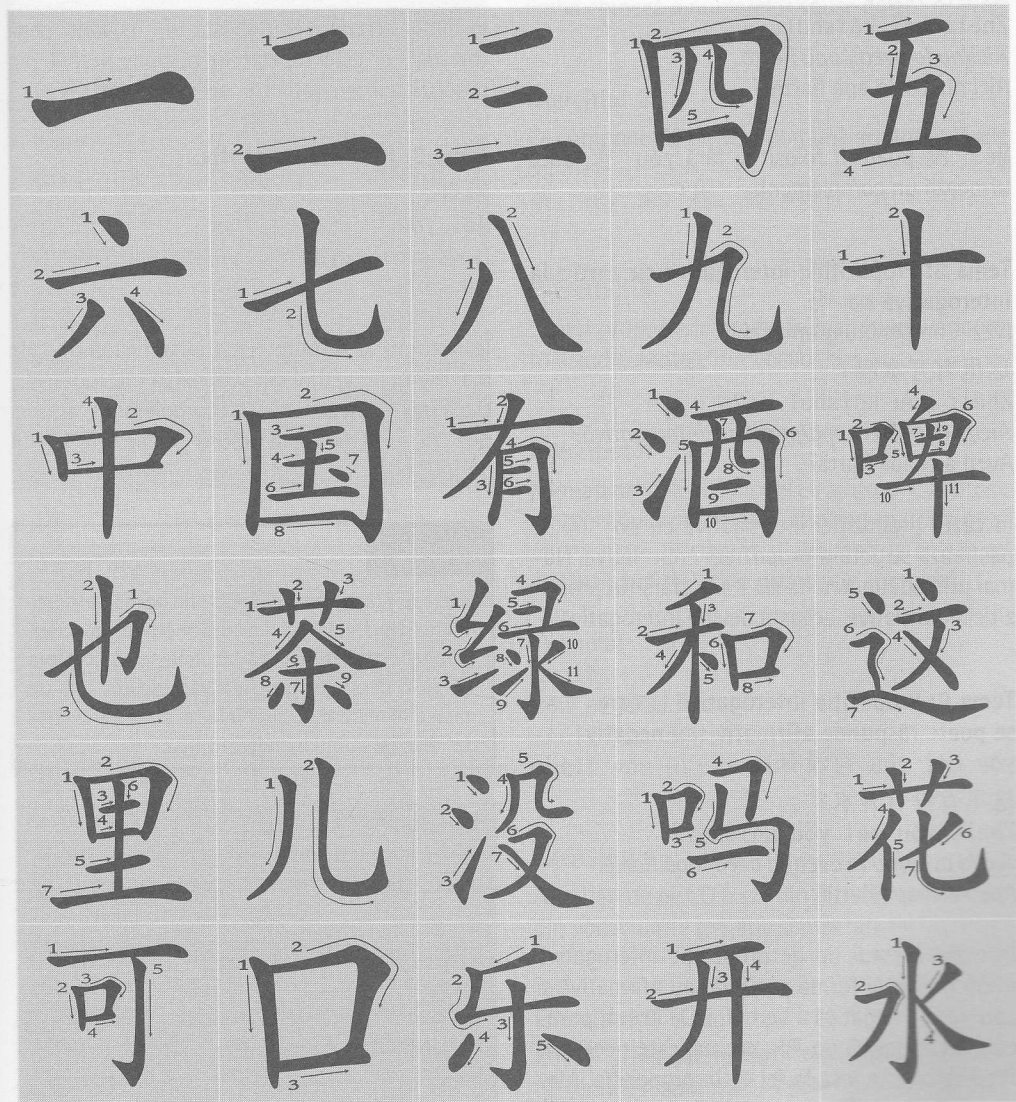 一 二 三 四 五
六 七 八 九 十
中 国 有 酒 啤
也 茶 绿 和 这
里 儿 没 吗 花
可 口 乐 开 水